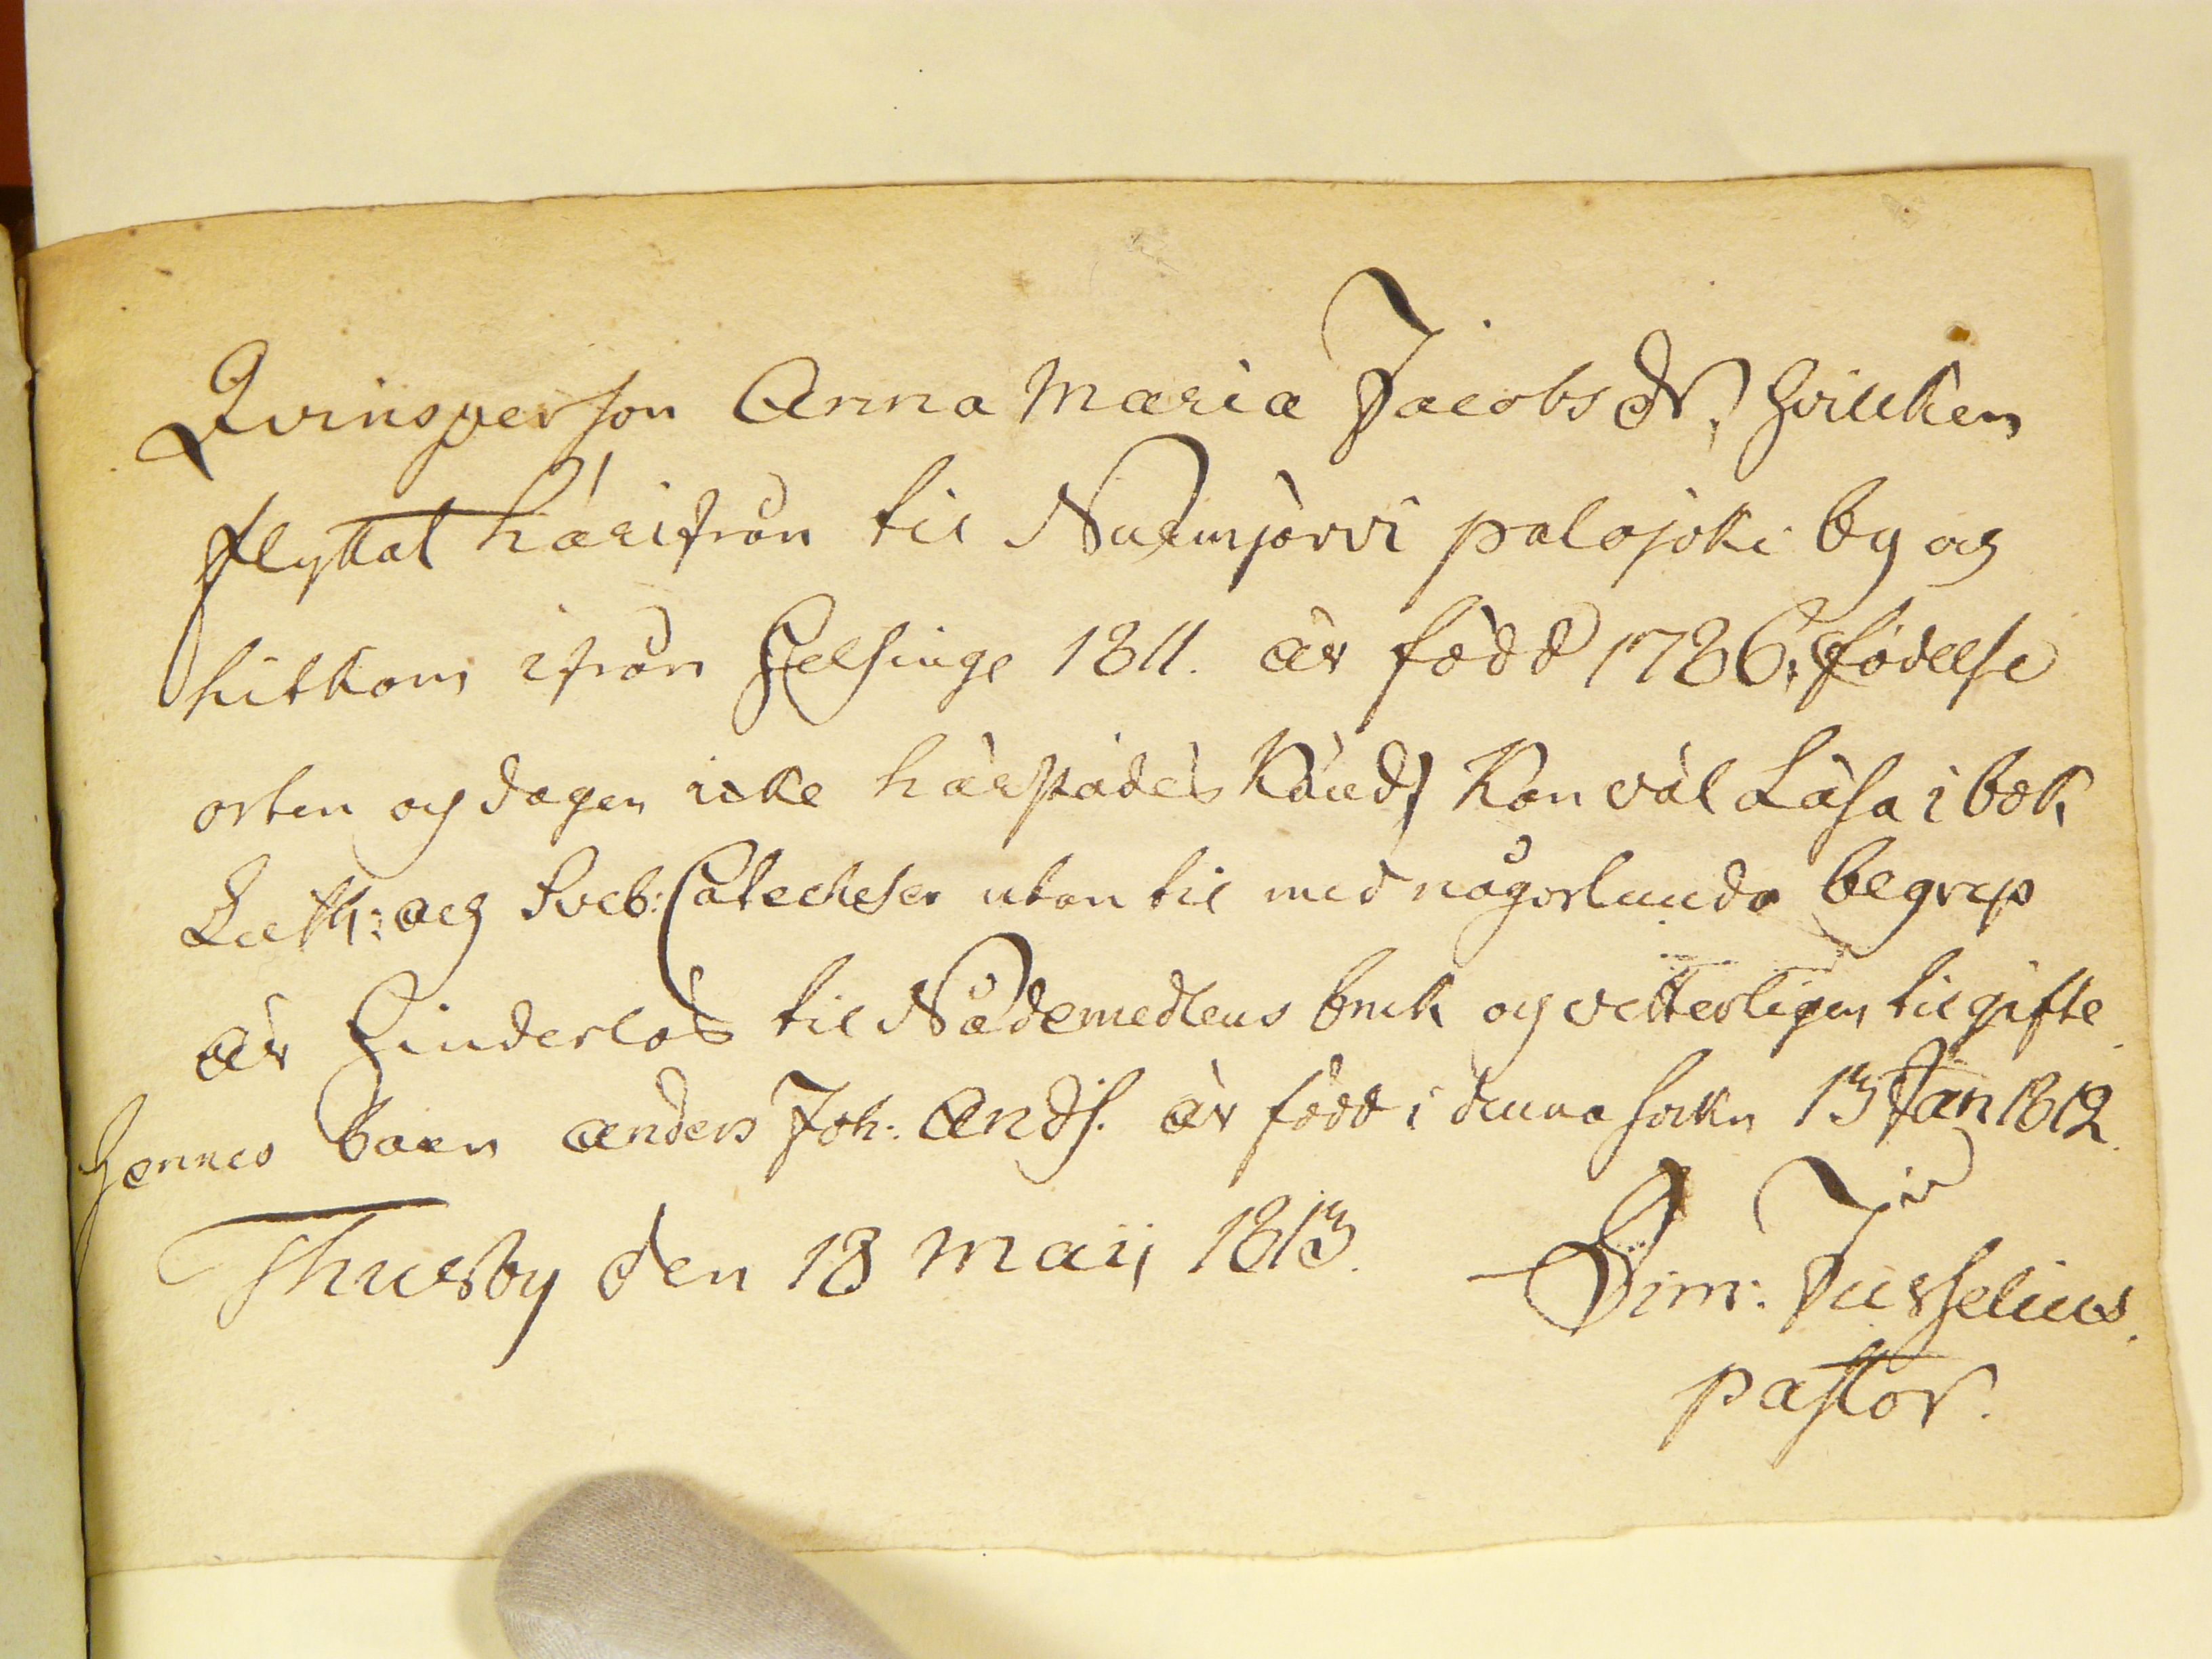 Qvinsperson Anna Maria Jacobs dr, hvilcken
flyttat härifrån til Nurmjärvi palojoki by och
hitkom ifrån Helsinge 1811. är född 1786, födelse
orten och dagen icke härstädes känd, Kan väl Läsa i bok
Luth: och Sveb: Catecheser utan til med någorlunda begrep
är hinderlös til Nådemedlens bruk och vetterligen til gifte
hennes barn anders Joh: Ands: är född i denna sokn 13 Jan 1812.
Thusby den 18 maij 1813.
Sim: Jusselius
pastor.